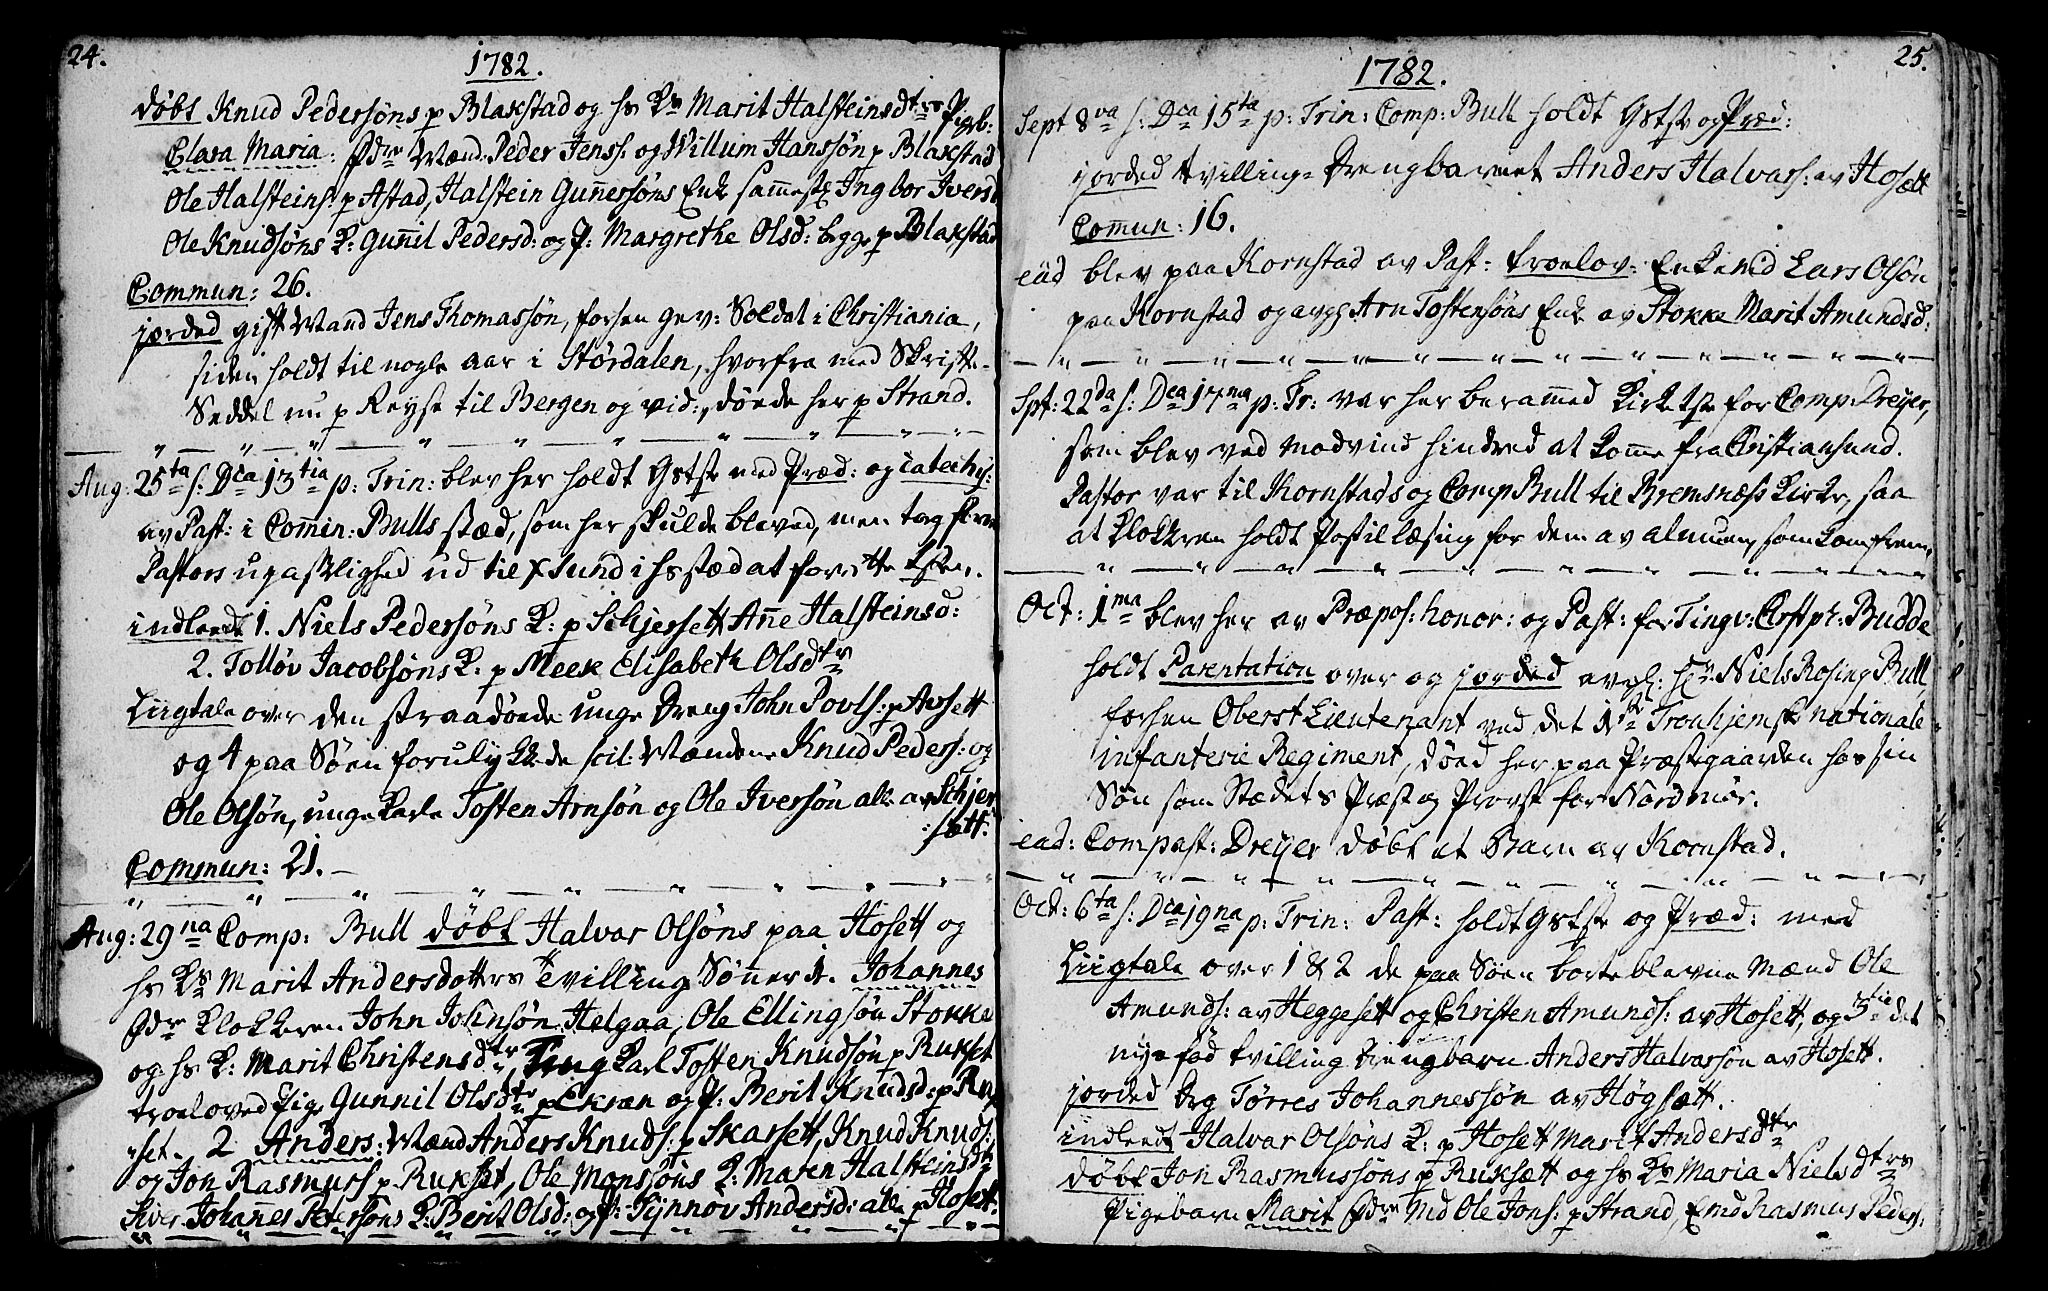 24.
1782.
döbt Knud Pedersöns p Blakstad og hs Ks Marit Halsteinsdtrs Pigeb:
Clara Maria: Fdre Mænd Peder Jenss: og Willum Hanssön p Blakstad
Ole Halsteins: p Astad, Halstein Gunnersöns Enk sammest: Ingbor Iversd
Ole Knudsöns K: Gunnil Pedersd: og P: Margrethe Olsd: begge p Blakstad
Commun: 26.
jorded gift Mand Jens Thomassön, forhen gev: Soldat i Christiania,
siden holdt til nogle aar i Stördalen, hvorfra med Skrifte-
Seddel nu p Reyse til Bergen og vid:, döede her p Strand.
Aug: 25ta s: Dca 13tia p: Trin: blev her holdt Gstste med Præd: og catechis:
av Past: i Commin: Bulls stæd, som her skulde bleved, men tog for
Pastors upaslighed ud til X Sund i hs stæd at forrette
indleedt 1. Niels Pedersöns K: p Schjersett Anne Halsteinsd:
2. Tollöv Jacobsöns K: p Meek Elisabeth Olsdtr
Liigtale over den straadöede unge Dreng John Povls: p Avsett
og 4 paa Söen forulykkede scil: Mændene Knud Peders: og
Ole Olsön, unge Karle Tosten Arnsön og Ole Iversön alle av Schjer
:sett.
Commun: 21.
Aug: 29na Comp: Bull döbt Halvar Olsöns paa Hosett og
hs Ks Marit Andersdottrs tvilling Sönner 1. Johannes
Fdre Klokkeren John Johnsön Helgaa, Ole Ellingsön Stokke
og hs K: Marit Christensdtr, Ung Karl Tosten Knudsön p Rukset
troeloved Pige Gunnil Olsdtr p Ekræn og P: Berit Knudsd: p Ruk
set. 2 Anders: Mænd Anders Knuds: p Skarsett, Knud Knuds:
og Jon Rasmuss p Rukset, Ole Monssöns K: Maren Halsteinsdtr
Siver Johanes Petersöns K: Berit Olsd: og P: Synnov Andersd: alle p Hosett.
25.
1782.
Sept 8va s: Dca 15ta p: Trin: Comp: Bull holdt Gstste og Præd:
jorded tvilling-Drengbarnet Anders Halvars: av Hosett
Commun: 16.
ead blev paa Kornstad av Past: troelov: Enkemd Lars Olsön
paa Kornstad og avgs Arn Tostensöns Enk av Stokke Marit Amundsd:
Spt: 22da s: Dca 17na p: Tr: var her berammed Kirketste for Comp: Dreyer,
som blev ved modvind hindred at komme fra Christiansund.
Pastor var til Kornstads og Comp Bull til Bremsnæss Kirke, saa
at Klokkren holdt Postillæsing for dem av almuen, som kom frem.
Oct: 1ma blev her av Præpos: honor: og Past: for Tingv: Hr: Budde
holdt Parentation over og jorded avgl: Hr: Niels Rosing Bull,
forhen Oberst Lieutenant ved det 1ste Tronhjemske nationale
infanterie Regiment, död her paa Præstegaarden hos sin
Sön som Stædets Præst og Provst for Nordmör.
ead: Compast: Dreyer döbt et Barn av Kornstad.
Oct: 6ta s: Dca 19na p: Trin: Past: holdt Gstste og Præd: med
Liigtale over 1 & 2 de paa Söen borteblevne Mænd Ole
Amunds: av Heggesett og Christen Amunds: av Hosett, og 3tie det
nyeföd tvilling drengbarn Anders Halvarssön av Hosett.
jorded Drg Törres Johannessön av Högsætt.
indleedt Halvar Olsöns K: p Hosett Marit Andersdtr
döbt Jon Rasmussöns p Ruksætt og hs Ks Maria Nielsdtrs
Pigebarn Marit Fdre Md Ole Jons: p Strand, Emd Rasmus Peders: